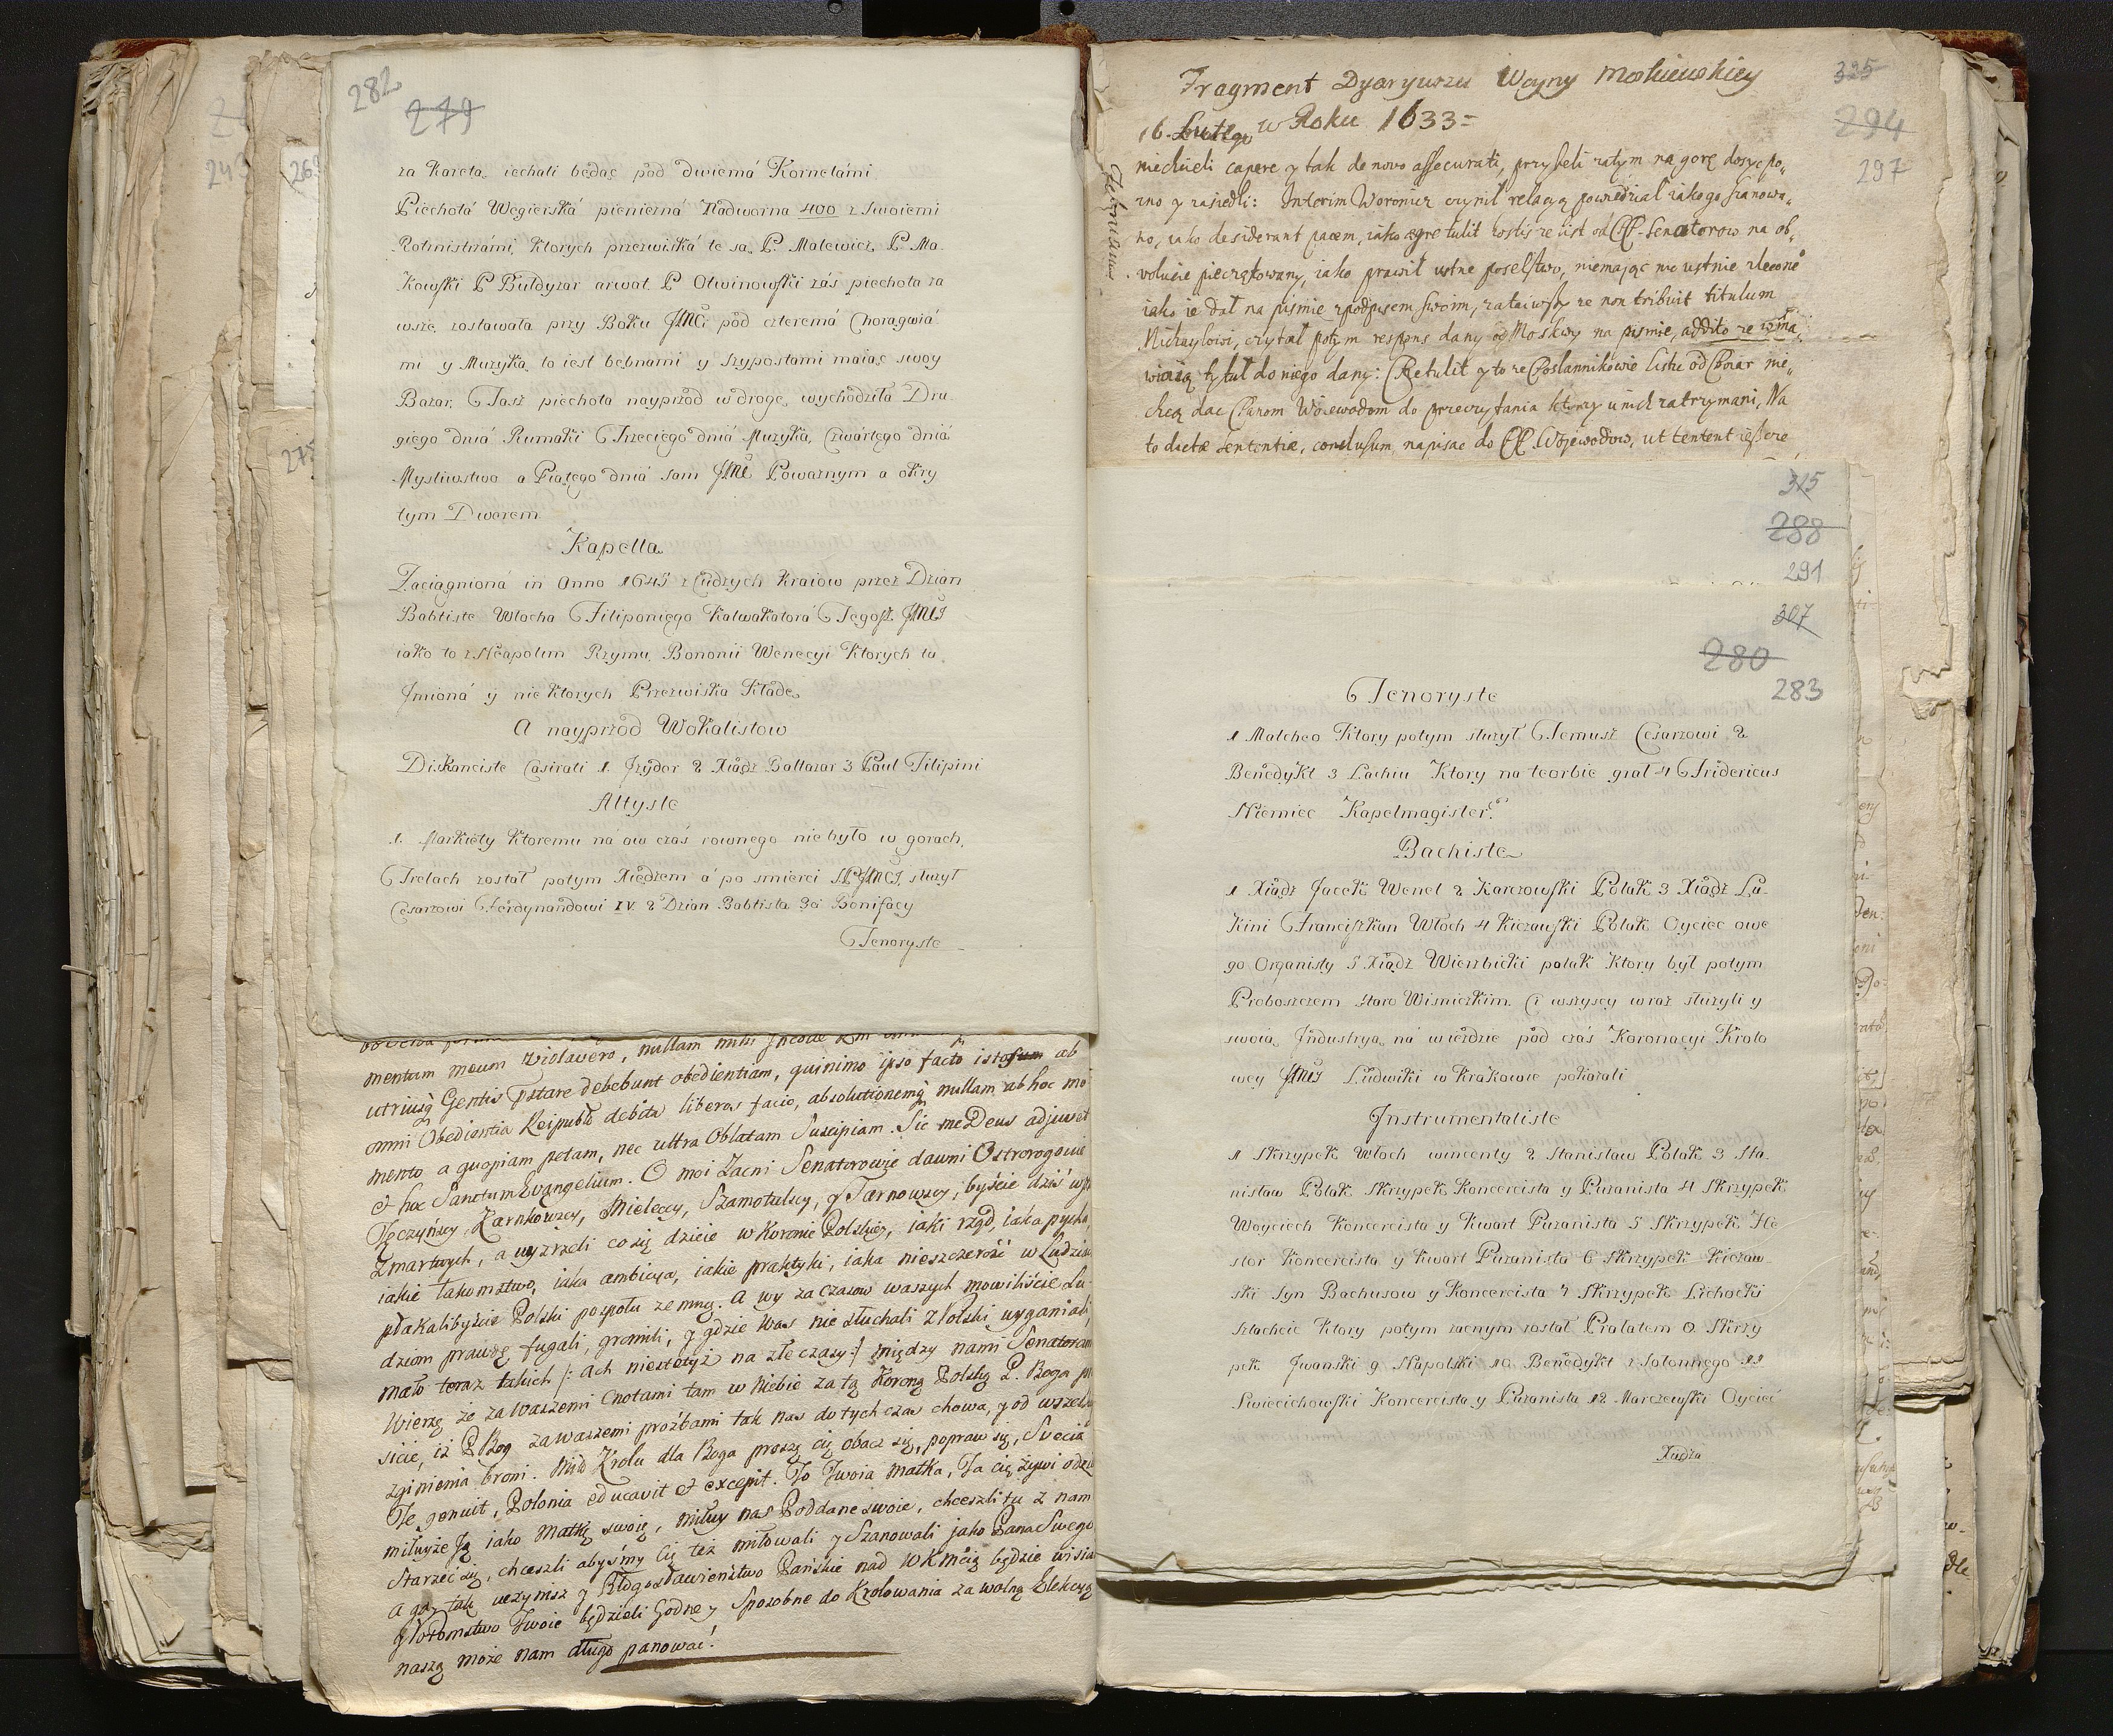 282
279
za Karetą iechali będąc pod dwiemá Kornetámi
Piechotá Węgierská pienięzná Nadworna 400 z Swoiemi
Rotmistrzámi, ktorych przezwiská te są, P. Malewicz, P. Ma-
kowski P Buldyzar arwat. P Otwinowski zás piechota za
wsze zostawała przy Boku JMCi pod czteremá Chorągwiá-
mi y Muzyką to iest bębnami y szyposzami maiąc swoy
Bazar, Tasz piechota nayprzod w drogę wychodziła Dru-
giego dniá Rumaki Trzeciego dniá Muzyka, Czwartego dniá
Mysliwstwo a Piątego dniá sam JMC Poważnym a okry
tym Dworem
Kapella
Zaciągnioná in Anno 1645 z Cudzych Kraiow przez Dzian
Babtiste Włocha Filiponiego Kalwakatorá Tegosz JMCI
iako to z Neapolim Rzymu, Bononii Wenecyi Ktorych tu
Jmioná y nie ktorych Przezwiska Kłade
A nayprzod Wokalistow
Diskanciste Casirati 1. Jzydor 2 Xiądz Baltazar 3 Paul Filipini
Altyste
1. Markiety Ktoremu ná ow czás rownego nie było w gorach,
Trelach został potym Xiedzem á po smierci JMCI, służył
Cesarzowi Ferdynandowi IV 2 Dzian Babtista 3ci Bonifacy
Tenoryste
mentum meum violavero, nullam mihi
utriusq Gentis pstare debebunt obedientiam, quinimo ipso facto ab
omni Obedientia Reipubl debita liberos facio, absolutionemq nullam ab hoc mo
mento a quopiam petam, nec ultra Oblatam Suscipiam. Sic me Deus adjuvet
et hoc Sanctum Evangelium. O moi Zacni Senatorowie dawni Ostrorogowie
Tęczyńscy, Zarnkowscy, Mieleccy, Szamotulscy, y Tarnowscy, byście dziś wst
Zmartwych, a uyzrzeli co się dzieie w Koronie Polskiey, iaki rząd, iaka pycha,
iakie łakomstwo, iaka ambicya, iakie praktyki, iaka nieszczerość w Ludziac
płakalibyście Polski pospołu zemną. A wy za czasow waszych mowiliście Lu-
dziom prawdę fugali, gromili, y gdzie Was nie słuchali z Polski wyganiali,
mało teraz takich /: ach niestetyż na złe czasy :/ między nami Senatoram
Wierzę że za Waszemi Cnotami tam w Niebie za tą Koroną Polską P. Boga pr
sicie, iż P Bog za waszemi proźbami tak nas do tych czas chowa, y od wszelk
zginienia broni. Miły Krolu dla Boga proszę cię obacz się, popraw się, Svecia
Te genuit, Polonia educavit et excepit. To Twoia Matka, Ta cię żywi odzie
miłuyże Ją iako Matkę swoię, miłuy nas Poddane swoie, chceszli tu z nam
starzec się, chceszli abyśmy Cię też miłowali y Szanowali jako Pana Swego
A gdy tak uczynisz y Błogosławieństwo Pańskie nad WKMcią będzie wisia
y Potomstwo Twoie będzieli Godne y Sposobne do Krolowania za wolną Elekcyą
naszą może nam długo panować!
Fragment Dyaryuszu Woyny Moskiewskiey
16. Lutego w Roku 1633 =
325
294
297
niechcieli capere y tak de novo assecurati, przyszeli zatym na gorę dosyc po,,
zno y zasiedli: Interim Woronicz czynił relacyą powiedział iako go szanowa,,
no, iako desiderant pacem, iako ægre tulit hostis ze list od PP. Senatorow na ob,,
wolucie pieczętowany, iako prawił ustne poselstwo, niemając nic ustnie zlecone
iako ie dał na piśmie z podpisem swoim, zataiwszy ze non tribuit titulum
Michayłowi, czytał potym respons dany od Moskwy na piśmie, addito ze wzma,,
wiaią tytuł do niego dany: Retulit y to ze Posłannikowie listu od Boiar nie,,
chcą dac Panom Woiewodom do przeczytania ktorzy u nich zatrzymani, Na
to dictæ sententiæ, conclusum napisac do PP. Woiewodow, ut tentent ieszcze
315
288
291
307
280
283
Tenoryste
1 Matheo Ktory potym służył Temusz Cesarzowi 2
Benedykt 3 Lachiu Ktory na teorbie grał 4 Fridericus
Niemiec Kapelmagister
Bachiste
1 Xiądz Jacek Wenet 2 Karczowski Polak 3 Xiądz Lu-
kini Franciszkan Włoch 4 Kiczawski Polak Oyciec owe
go Organisty 5 Xiądz Wierzbicki polak Ktory był potym
Proboszczem staro Wisnickim. Ci wszyscy wraz służyli y
swoią Jndustryą ná wieździe pod czás Koronacyi Krolo
wey JMCI Ludwiki w Krakowie pokazali
Jnstrumentaliste
1 Skrzypek Włoch wincenty 2 Stanisław Polak 3 Sta-
nisław Polak Skrzypek Koncercista y Puzanista 4 Skrzypek
Woyciech Koncercista y Kwart Puzanista 5 Skrzypek He
stor Koncercista y Kwart Puzanista 6 Skrzypek Kiczaw-
ski Syn Bachusow y Koncercista 7 Skrzypek Lichocki
Szlachcic Ktory potym zacnym został Prałatem 8 Skrzy
pek Jwanski 9 Napolski 10 Benedykt z Solonnego 11
Swiecichowski Koncercista y Puzanista 12 Marczewski Oyciec
Xiędza